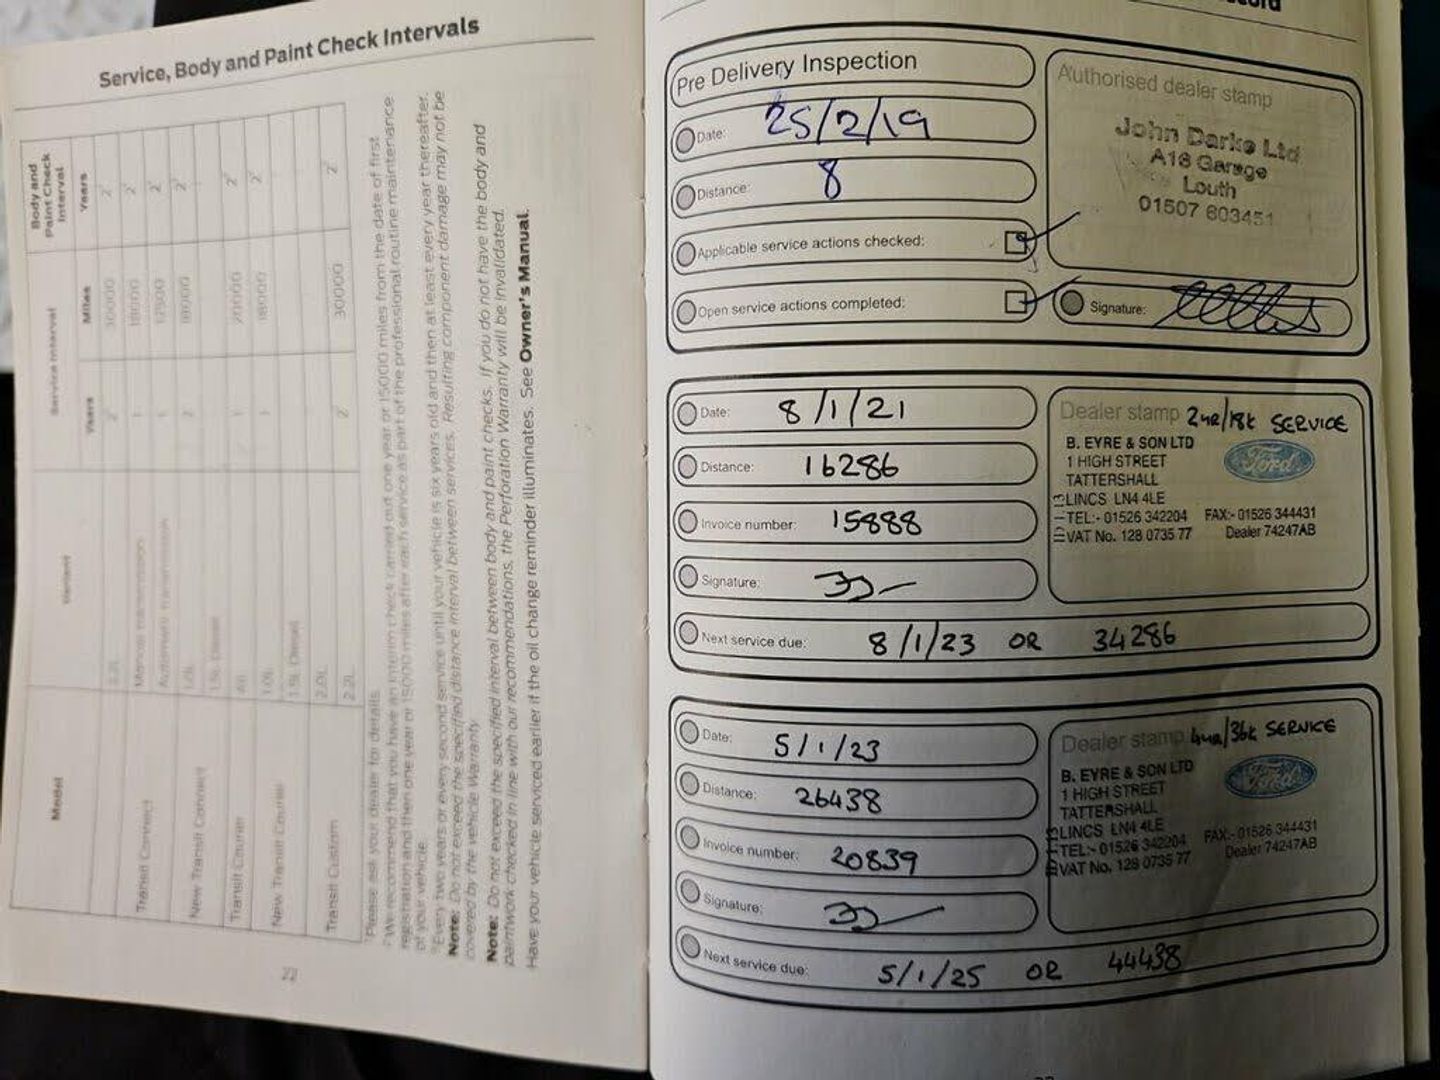 Service, Body and Paint Check Intervals
Model
Variant
Service Interval
Body and Paint Check Interval
Years
Miles
Years
2.2L
2
30000
2
Transit Connect
Manual transmission
1
18000
2
Automatic transmission
1
12500
2
New Transit Connect
1.0L
2
18000
2
1.5L Diesel
Transit Courier
All
1
20000
2
New Transit Courier
1.0L
1
18000
2
1.5L Diesel
Transit Custom
2.0L
2.2L
2
30000
2
Please ask your dealer for details.
We recommend that you have an interim check carried out one year or 15000 miles from the date of first
registration and then one year or 15000 miles after each service as part of the professional routine maintenance
of your vehicle.
Every two years or every second service until your vehicle is six years old and then at least every year thereafter.
Note: Do not exceed the specified distance interval between services. Resulting component damage may not be
covered by the vehicle Warranty.
Note: Do not exceed the specified interval between body and paint checks. If you do not have the body and
paintwork checked in line with our recommendations, the Perforation Warranty will be invalidated.
Have your vehicle serviced earlier if the oil change reminder illuminates. See Owner's Manual.
22
Pre Delivery Inspection
Date: 25/2/19
Distance: 8
Applicable service actions checked:
Open service actions completed:
Authorised dealer stamp
John Darke Ltd
A16 Garage
Louth
01507 603451
Signature:
Date: 8/1/21
Distance: 16286
Invoice number: 15888
Signature:
Next service due: 8/1/23 OR 34286
Dealer stamp 2YR/18K SERVICE
B. EYRE & SON LTD
1 HIGH STREET
TATTERSHALL
LINCS LN4 4LE
TEL:- 01526 342204 FAX:- 01526 344431
VAT No. 128 0735 77 Dealer 74247AB
Ford
Date: 5/1/23
Distance: 26438
Invoice number: 20839
Signature:
Next service due: 5/1/25 OR 44438
Dealer stamp 4YR/36K SERVICE
B. EYRE & SON LTD
1 HIGH STREET
TATTERSHALL
LINCS LN4 4LE
TEL:- 01526 342204 FAX:- 01526 344431
VAT No. 128 0735 77 Dealer 74247AB
Ford